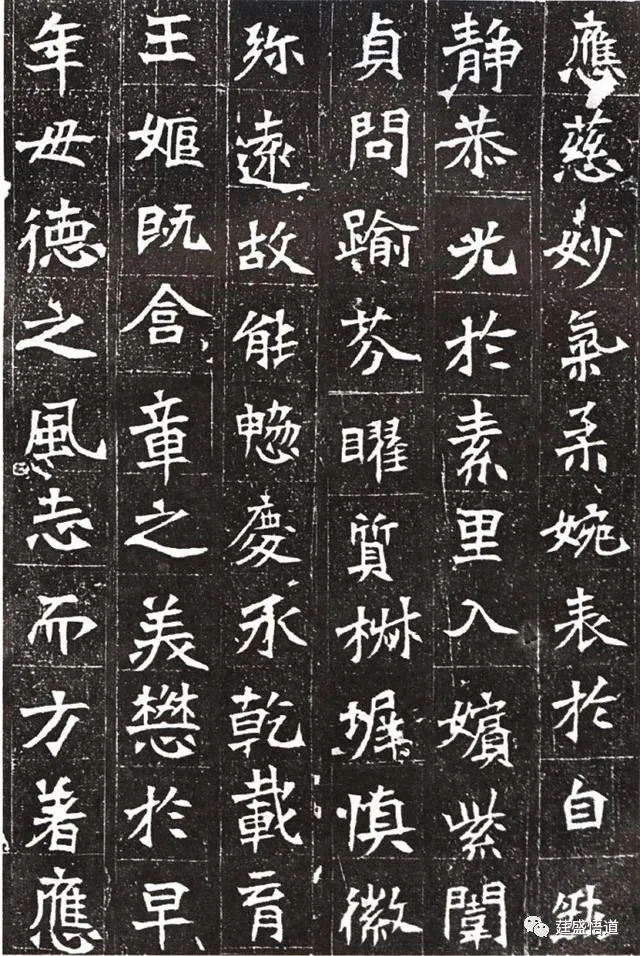 應慈妙氣柔婉表於自然
靜恭光於素里入嬪紫闈
貞問踰芬曜質椒墀慎徽
弥遠故能慶承乾載育
王姬既含章之美懋於早
年毋德之風志而方著應
莛盛悟道